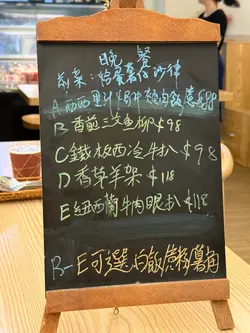 晚餐
前菜：恰蛋薯仔沙律
A 西西里汁 飯意粉
B 香煎三文魚柳 $98
C 鐵板西冷牛扒 $98
D 香草羊架 $118
E 紐西蘭牛肉眼扒 $118
B-E可選白飯意粉薯角